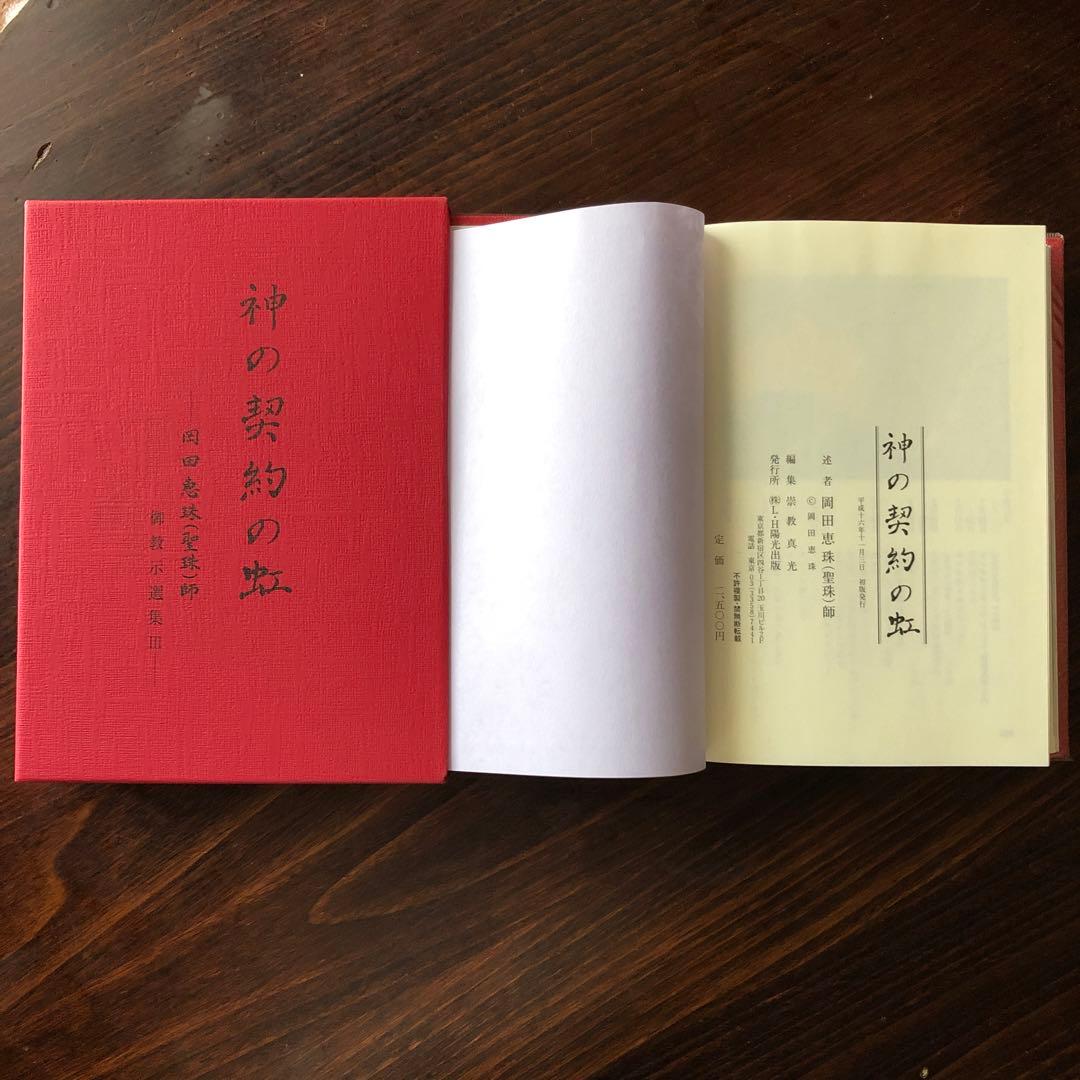 神の契約の虹
岡田恵珠(聖珠)師
御教示選集 III
神の契約の虹
平成十六年十一月三日 初版発行
述者 岡田恵珠(聖珠)師
© 岡田恵珠
編集 崇教真光
発行所 ㈱L・H陽光出版
東京都新宿区四谷1丁目20 玉川ビル2F
電話 東京 03(3358)7441
不許複製・禁無断転載
定価 二、五〇〇円